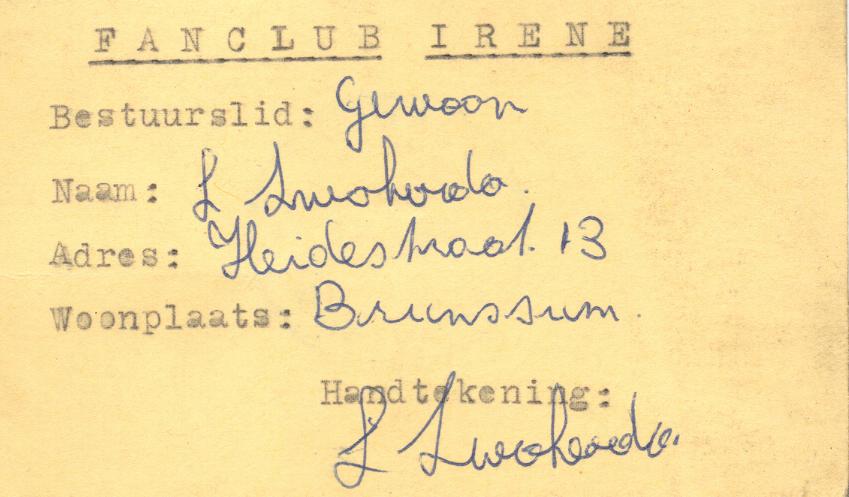 FANCLUB IRENE
Bestuurslid: Gewoon
Naam: L Swoboda.
Adres: Heidestraat. 13
Woonplaats: Brunssum.
Handtekening:
L Swoboda.